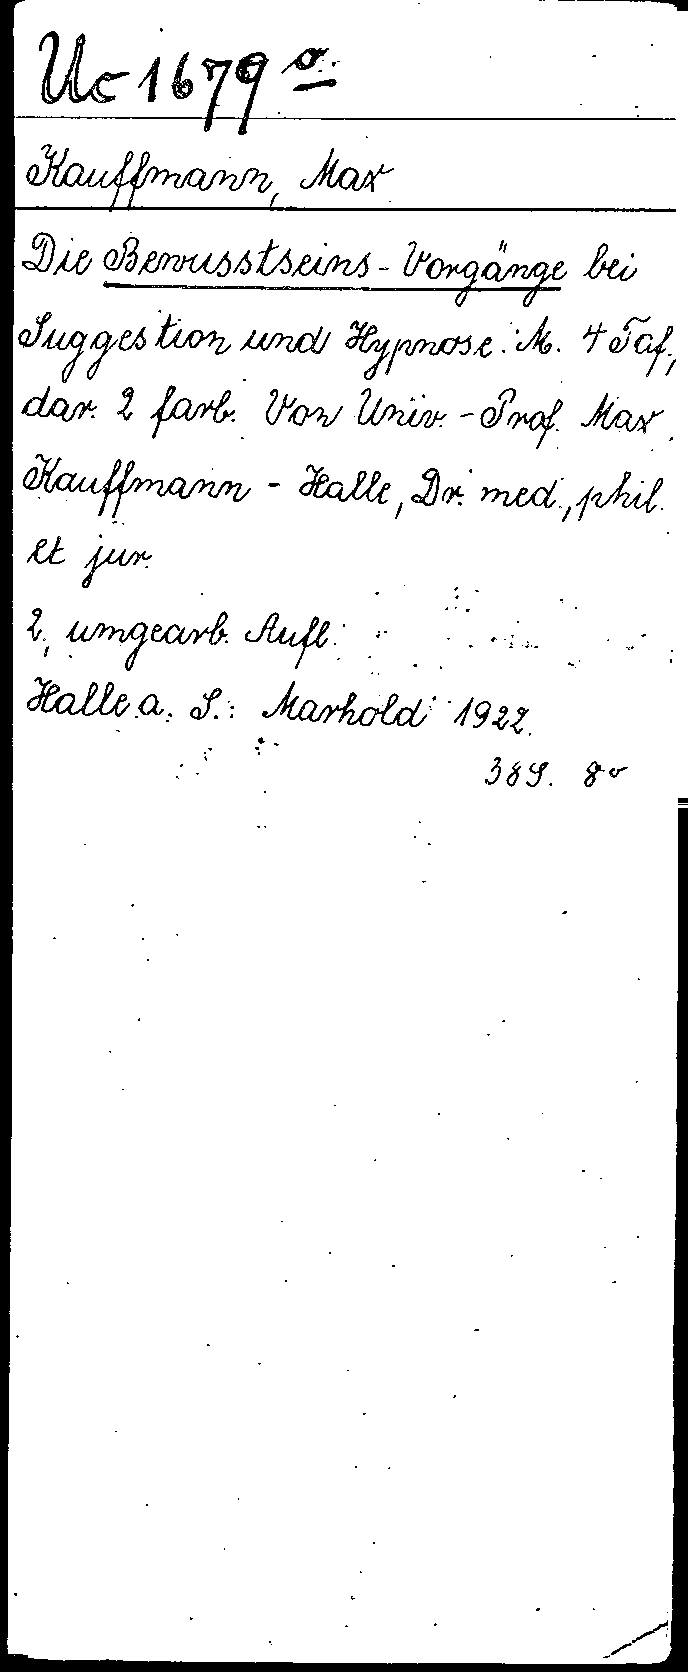 Uc 1679 o.
Kauffmann, Max
Die Bewusstseins-Vorgänge bei
Suggestion und Hypnose. M. 4 Taf.,
dar. 2 farb. Von Univ.-Prof. Max
Kauffmann - Halle, Dr. med., phil.
et jur.
2., umgearb. Aufl.
Halle a. S.: Marhold 1922.
38 S. 8o